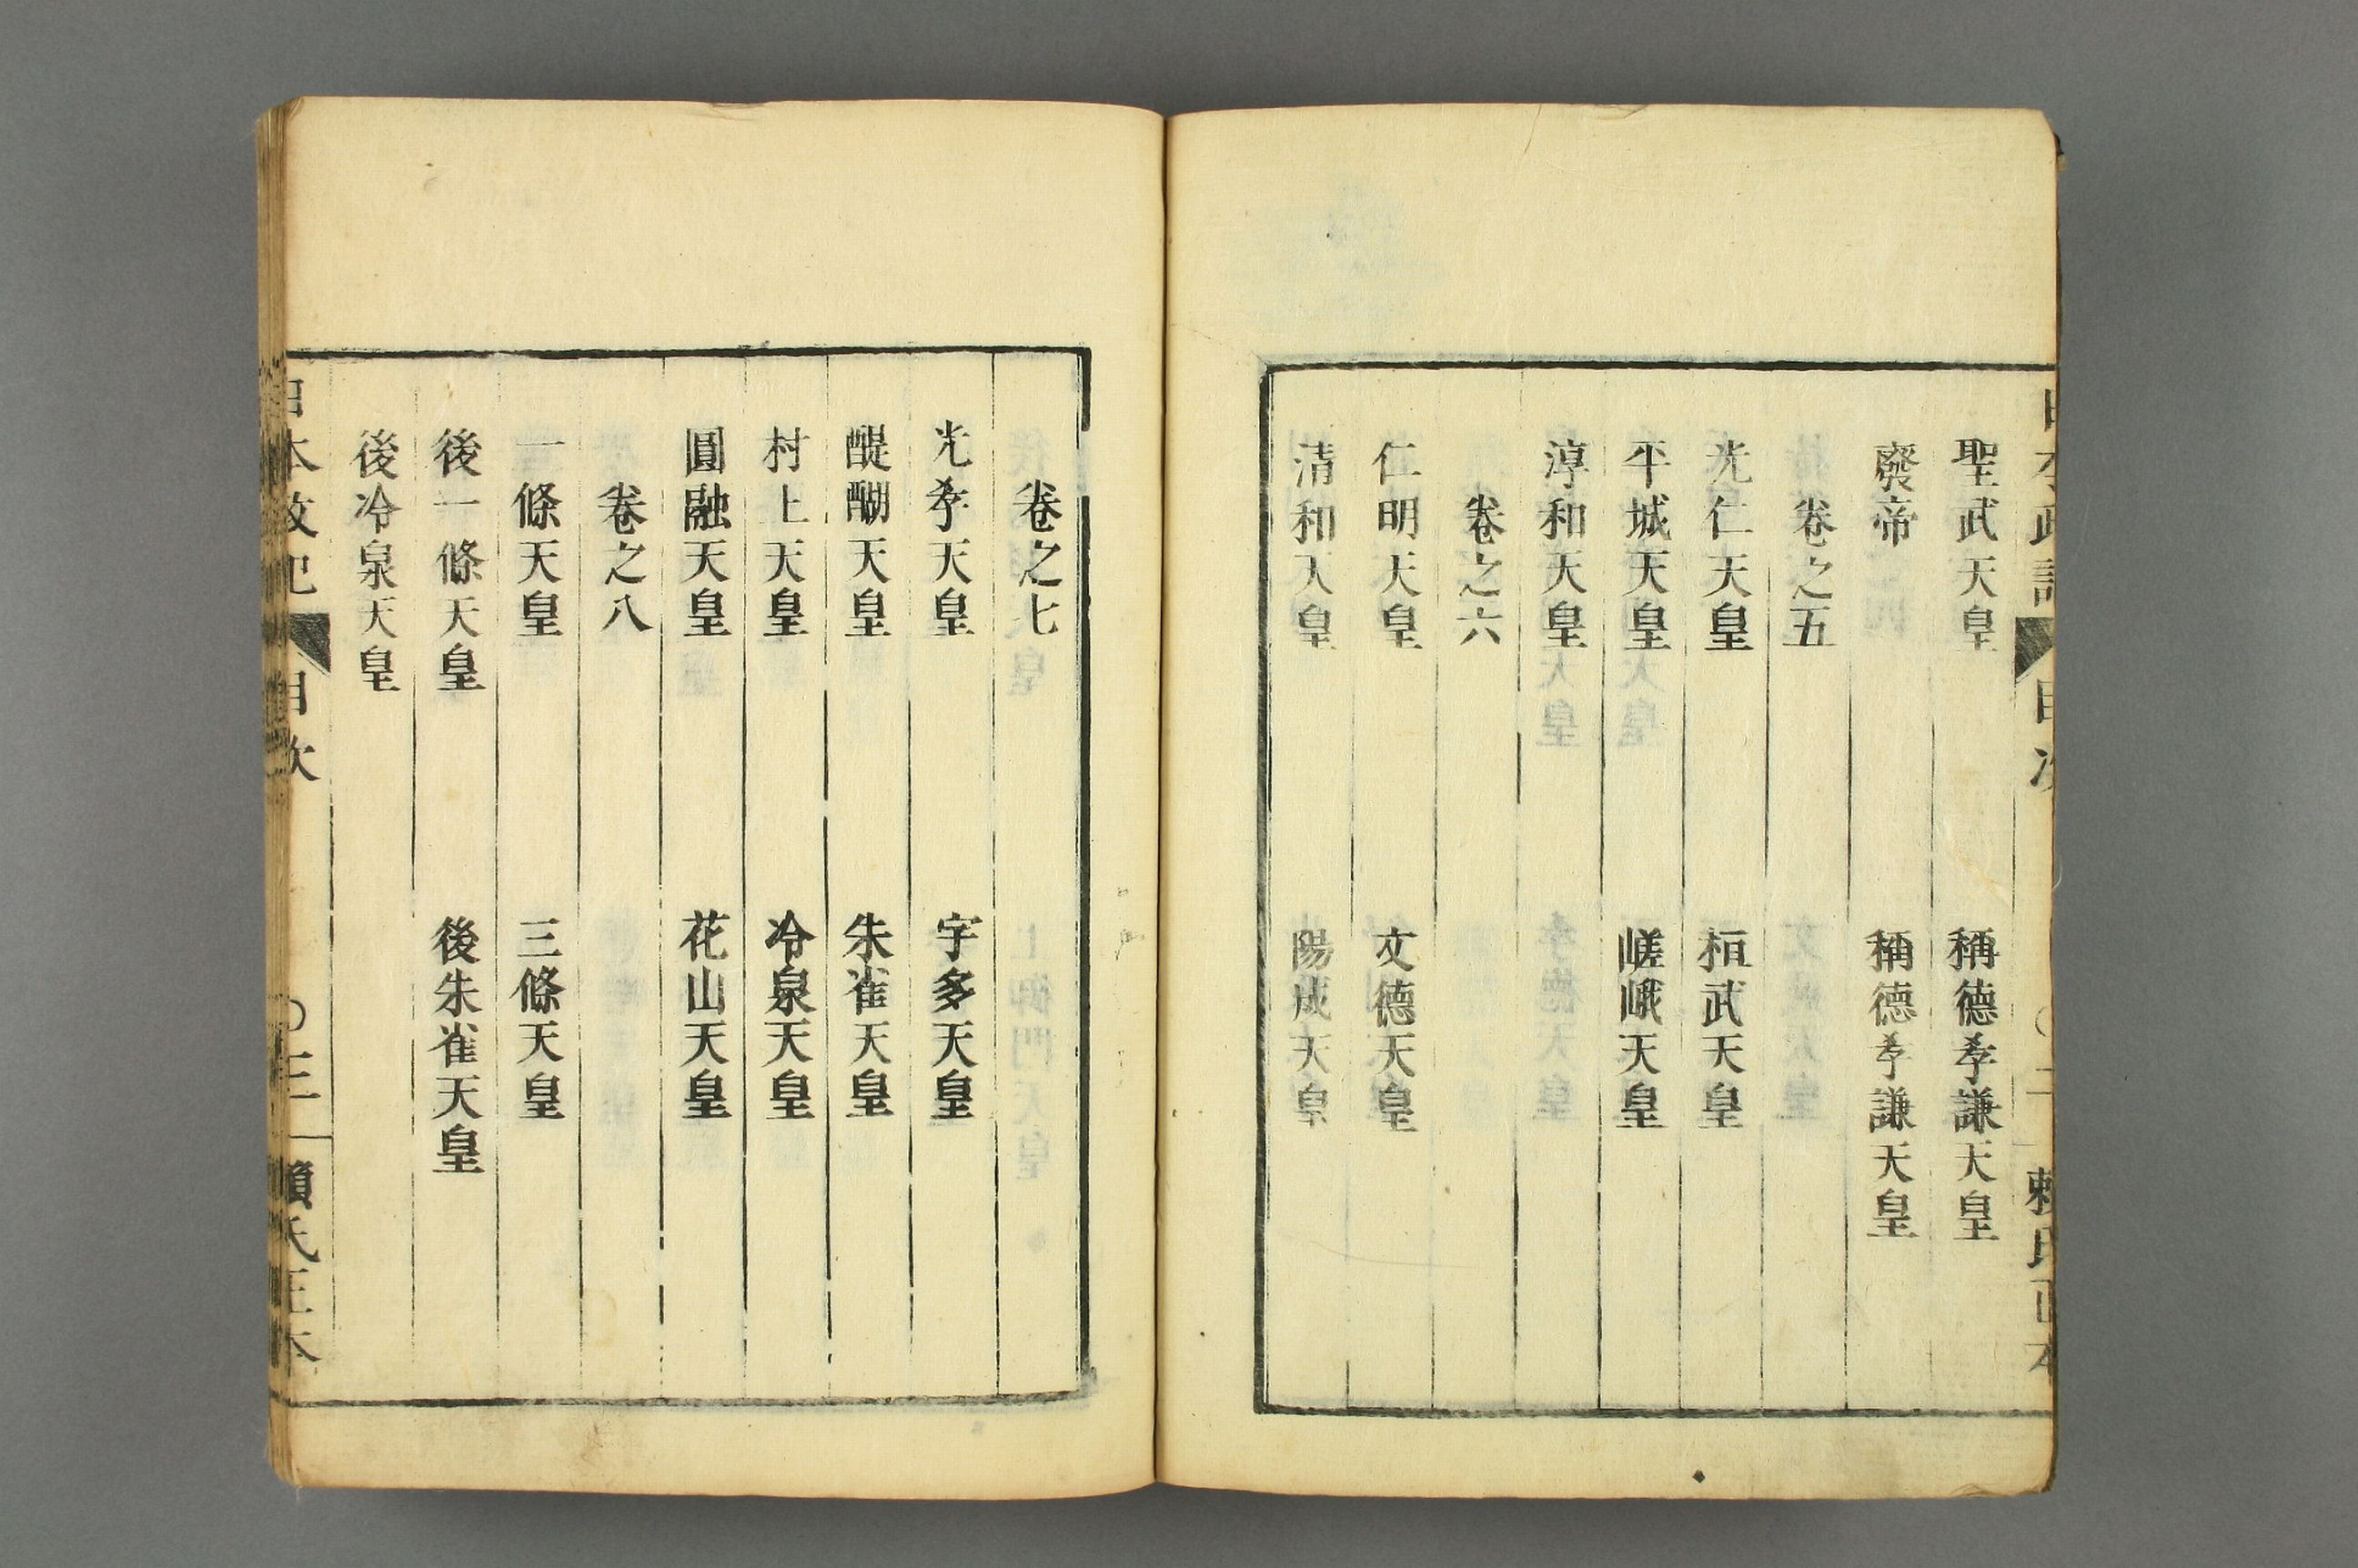 聖武天皇　稱德孝謙天皇
廢帝　稱德孝謙天皇
卷之五
光仁天皇　桓武天皇
平城天皇　嵯峨天皇
淳和天皇
卷之六
仁明天皇　文德天皇
清和天皇　陽成天皇
卷之七
光孝天皇　宇多天皇
醍醐天皇　朱雀天皇
村上天皇　冷泉天皇
圓融天皇　花山天皇
卷之八
一條天皇　三條天皇
後一條天皇　後朱雀天皇
後冷泉天皇
日本政記　目次　〇三　賴氏正本